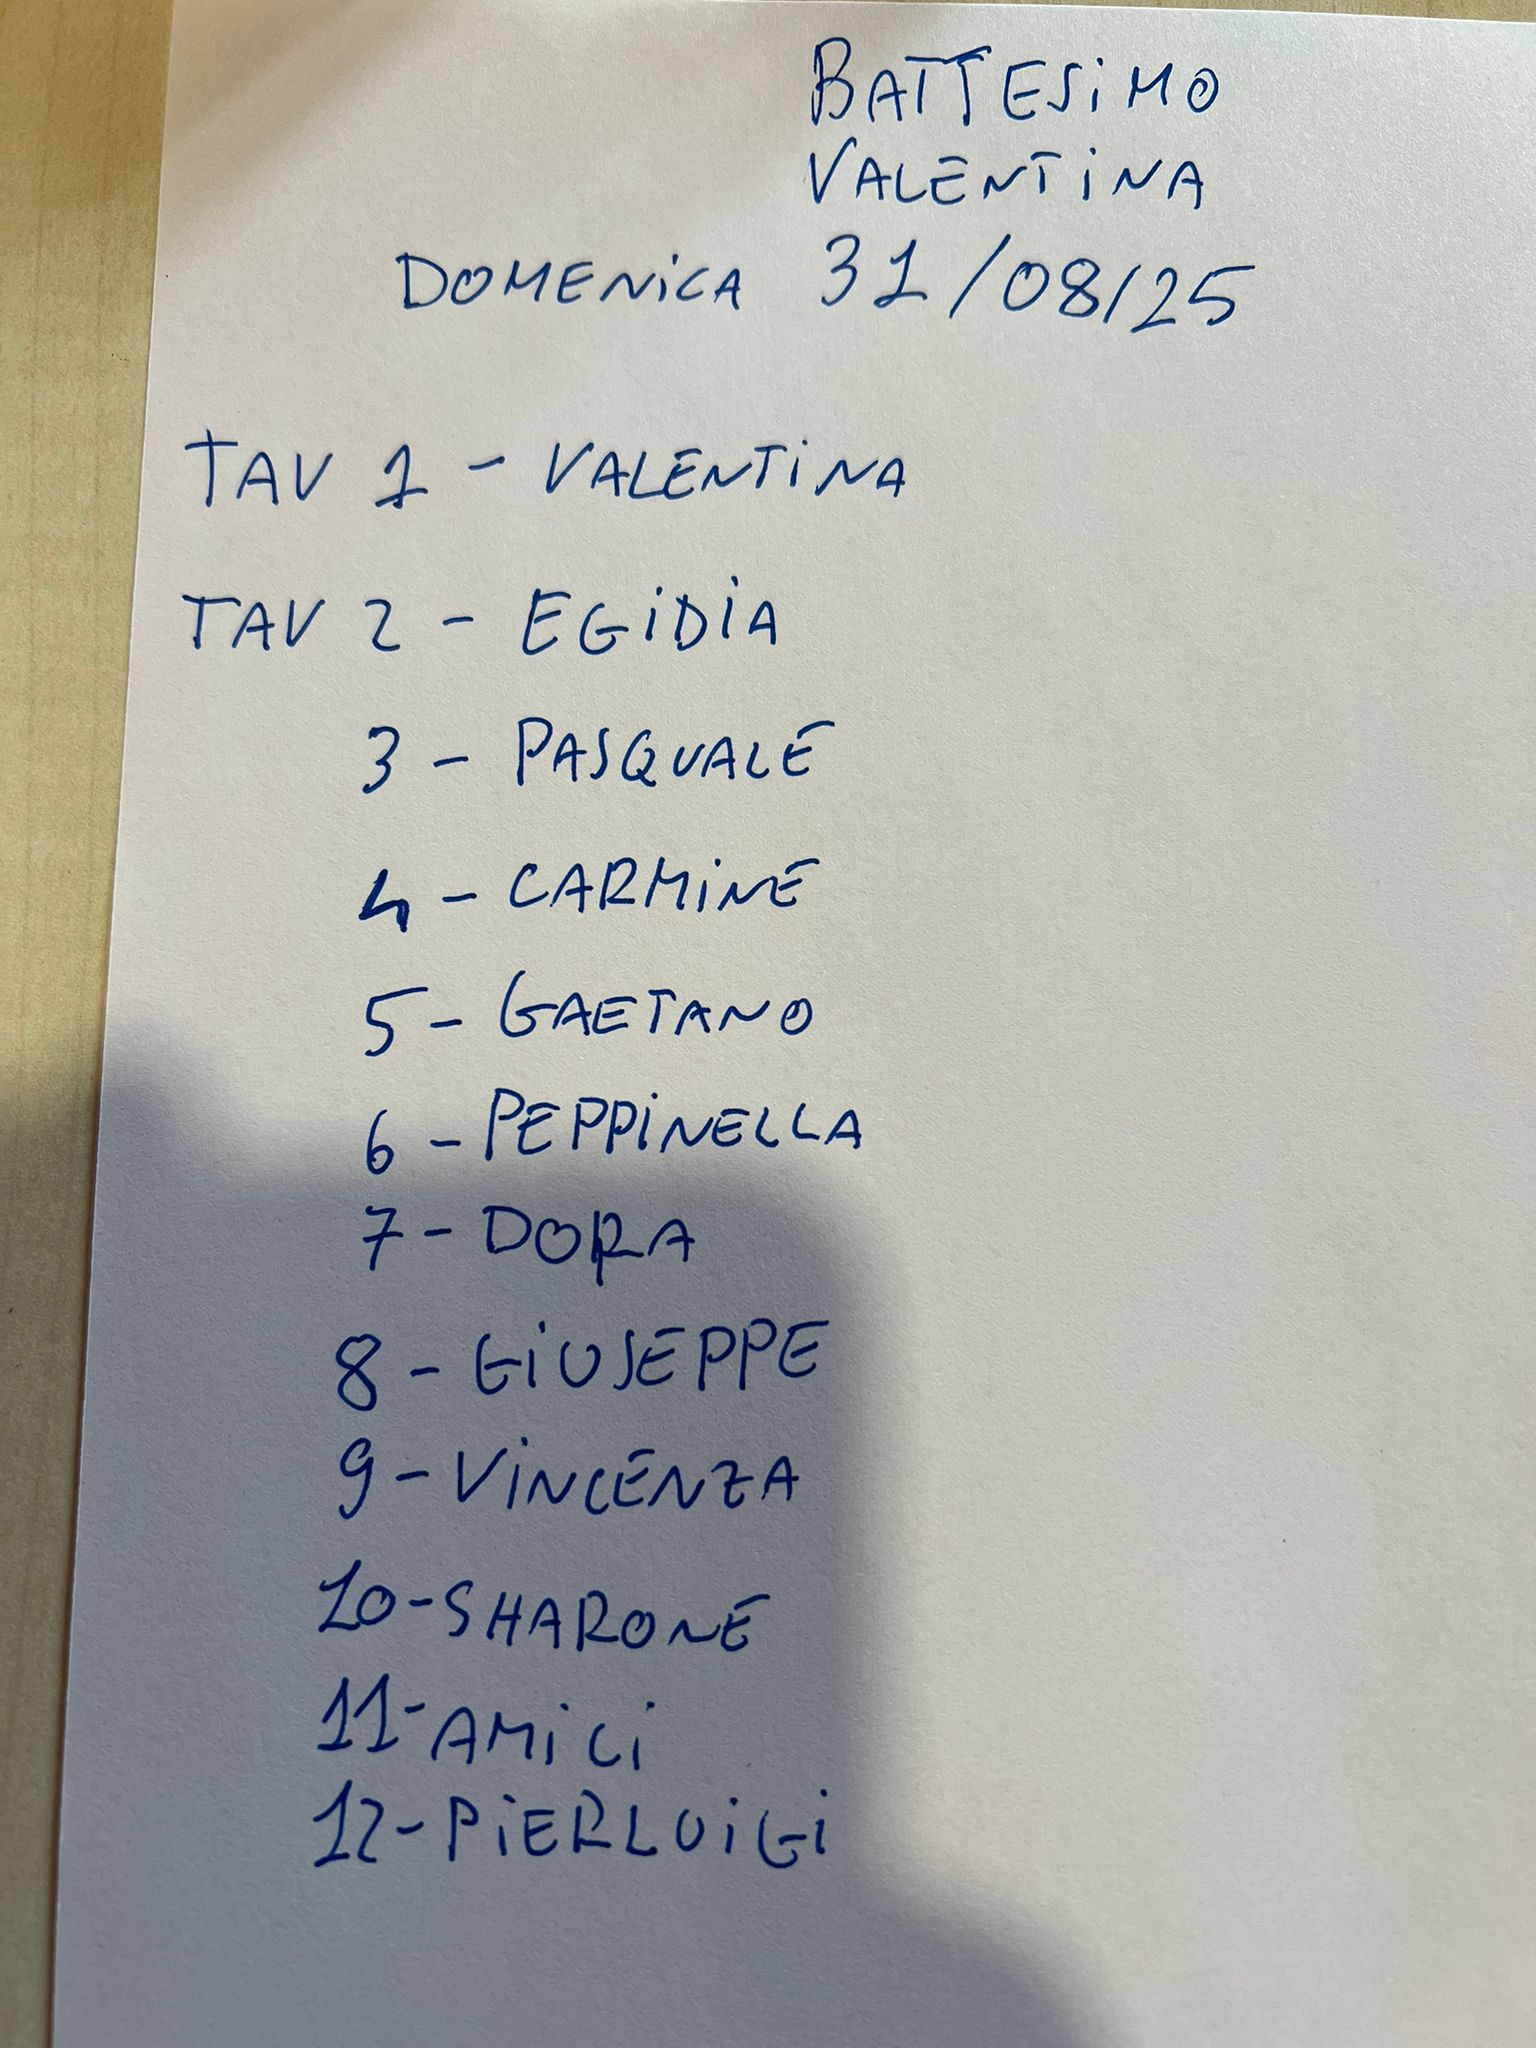 BATTESIMO
VALENTINA
DOMENICA 31/08/25
TAV 1 - VALENTINA
TAV 2 - EGIDIA
3 - PASQUALE
4 - CARMINE
5 - GAETANO
6 - PEPPINELLA
7 - DORA
8 - GIUSEPPE
9 - VINCENZA
10 - SHARONE
11 - AMICI
12 - PIERLUIGI